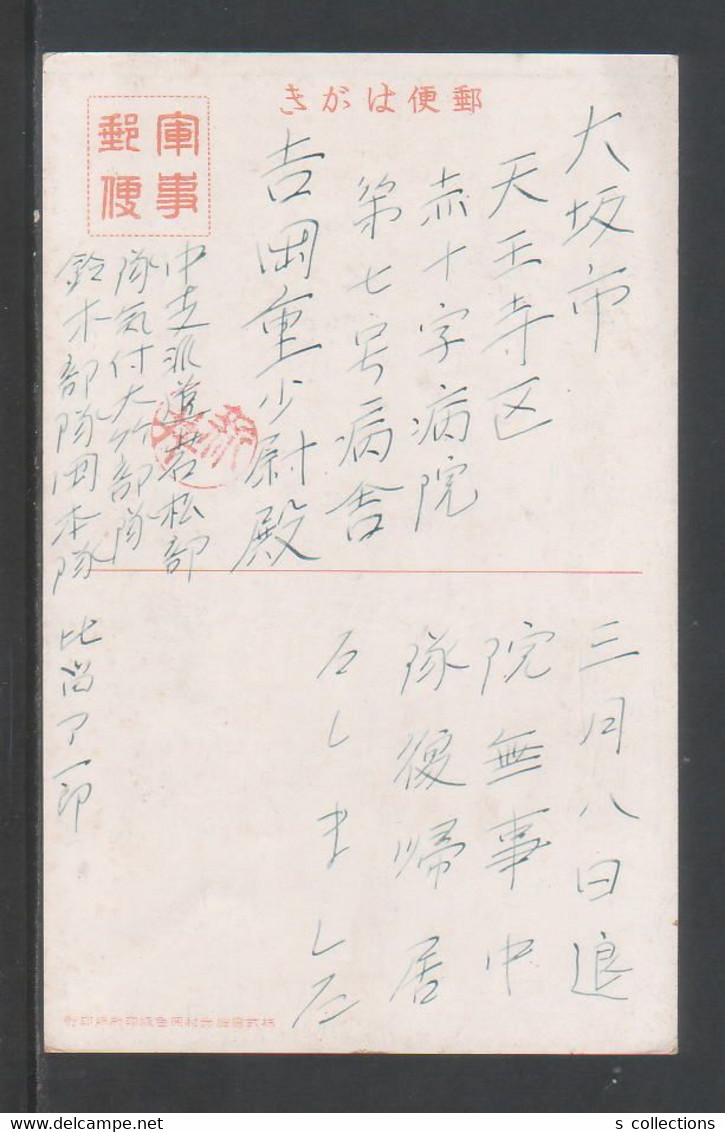 郵便はがき
軍事
郵便
大坂市
天王寺区
赤十字病院
第七号病舎
吉岡重少尉殿
中支派遣若松部
隊気付大竹部隊
鈴木部隊岡本隊
三月八日退
院無事中
隊復帰居
s collections